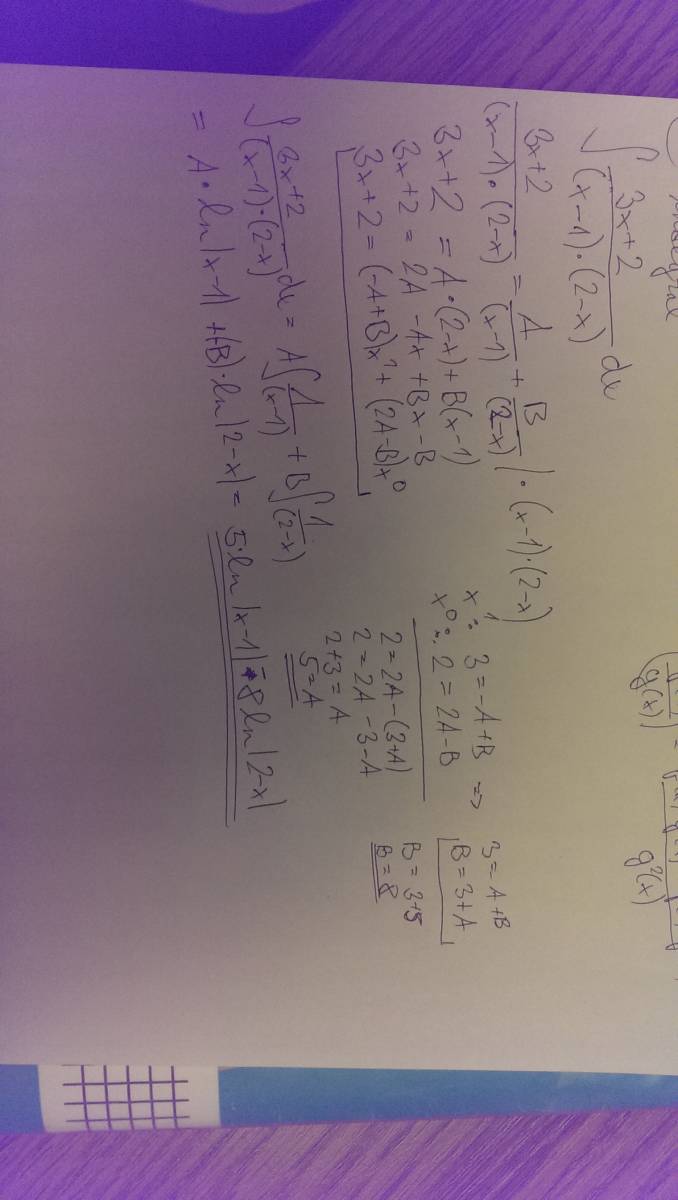 ∫ (3x+2)/((x-1)·(2-x)) dx
(3x+2)/((x-1)·(2-x)) = A/(x-1) + B/(2-x) |·(x-1)·(2-x)
3x+2 = A·(2-x)+B(x-1)
3x+2 = 2A - Ax + Bx - B
3x+2 = (-A+B)x¹ + (2A-B)x⁰
x¹: 3=-A+B =>
x⁰: 2=2A-B
3=-A+B
B=3+A
2=2A-(3+A)
2=2A-3-A
2+3=A
5=A
B=3+5
B=8
∫ (3x+2)/((x-1)·(2-x)) dx = A∫ 1/(x-1) + B∫ 1/(2-x)
= A·ln|x-1| + (B)·ln|2-x| = 5·ln|x-1| - 8 ln|2-x|
g(x)
=
g²(x)